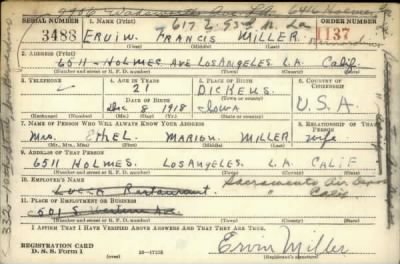 617 E. 93rd St. La
SERIAL NUMBER 1. Name (Print) ORDER NUMBER
3488 ERVIW. FRANCIS MILLER 1137
(First) (Middle) (Last)
2. Address (Print)
6511 - HOLMES AVE LOS ANGELES L.A. Calif.
(Number and street or R. F. D. number) (Town) (County) (State)
3. Telephone 4. Age in Years 5. Place of Birth 6. Country of Citizenship
21 DICKENS
Date of Birth
Dec 8 1918 Iowa U.S.A
(Mo.) (Day) (Yr.) (State or country)
7. Name of Person Who Will Always Know Your Address 8. Relationship of That Person
Mrs. Ethel. Marion. Miller wife
(Mr., Mrs., Miss) (First) (Middle) (Last)
9. Address of That Person
6511 HOLMES. LOS ANGELES. L.A. CALIF
(Number and street or R. F. D. number) (Town) (County) (State)
10. Employer's Name
Restaurant Sacramento Air
11. Place of Employment or Business
Calif
(Number and street or R. F. D. number) (Town) (County) (State)
I Affirm That I Have Verified Above Answers and That They Are True.
REGISTRATION CARD
D. S. S. Form 1 16-17105
Ervin Miller